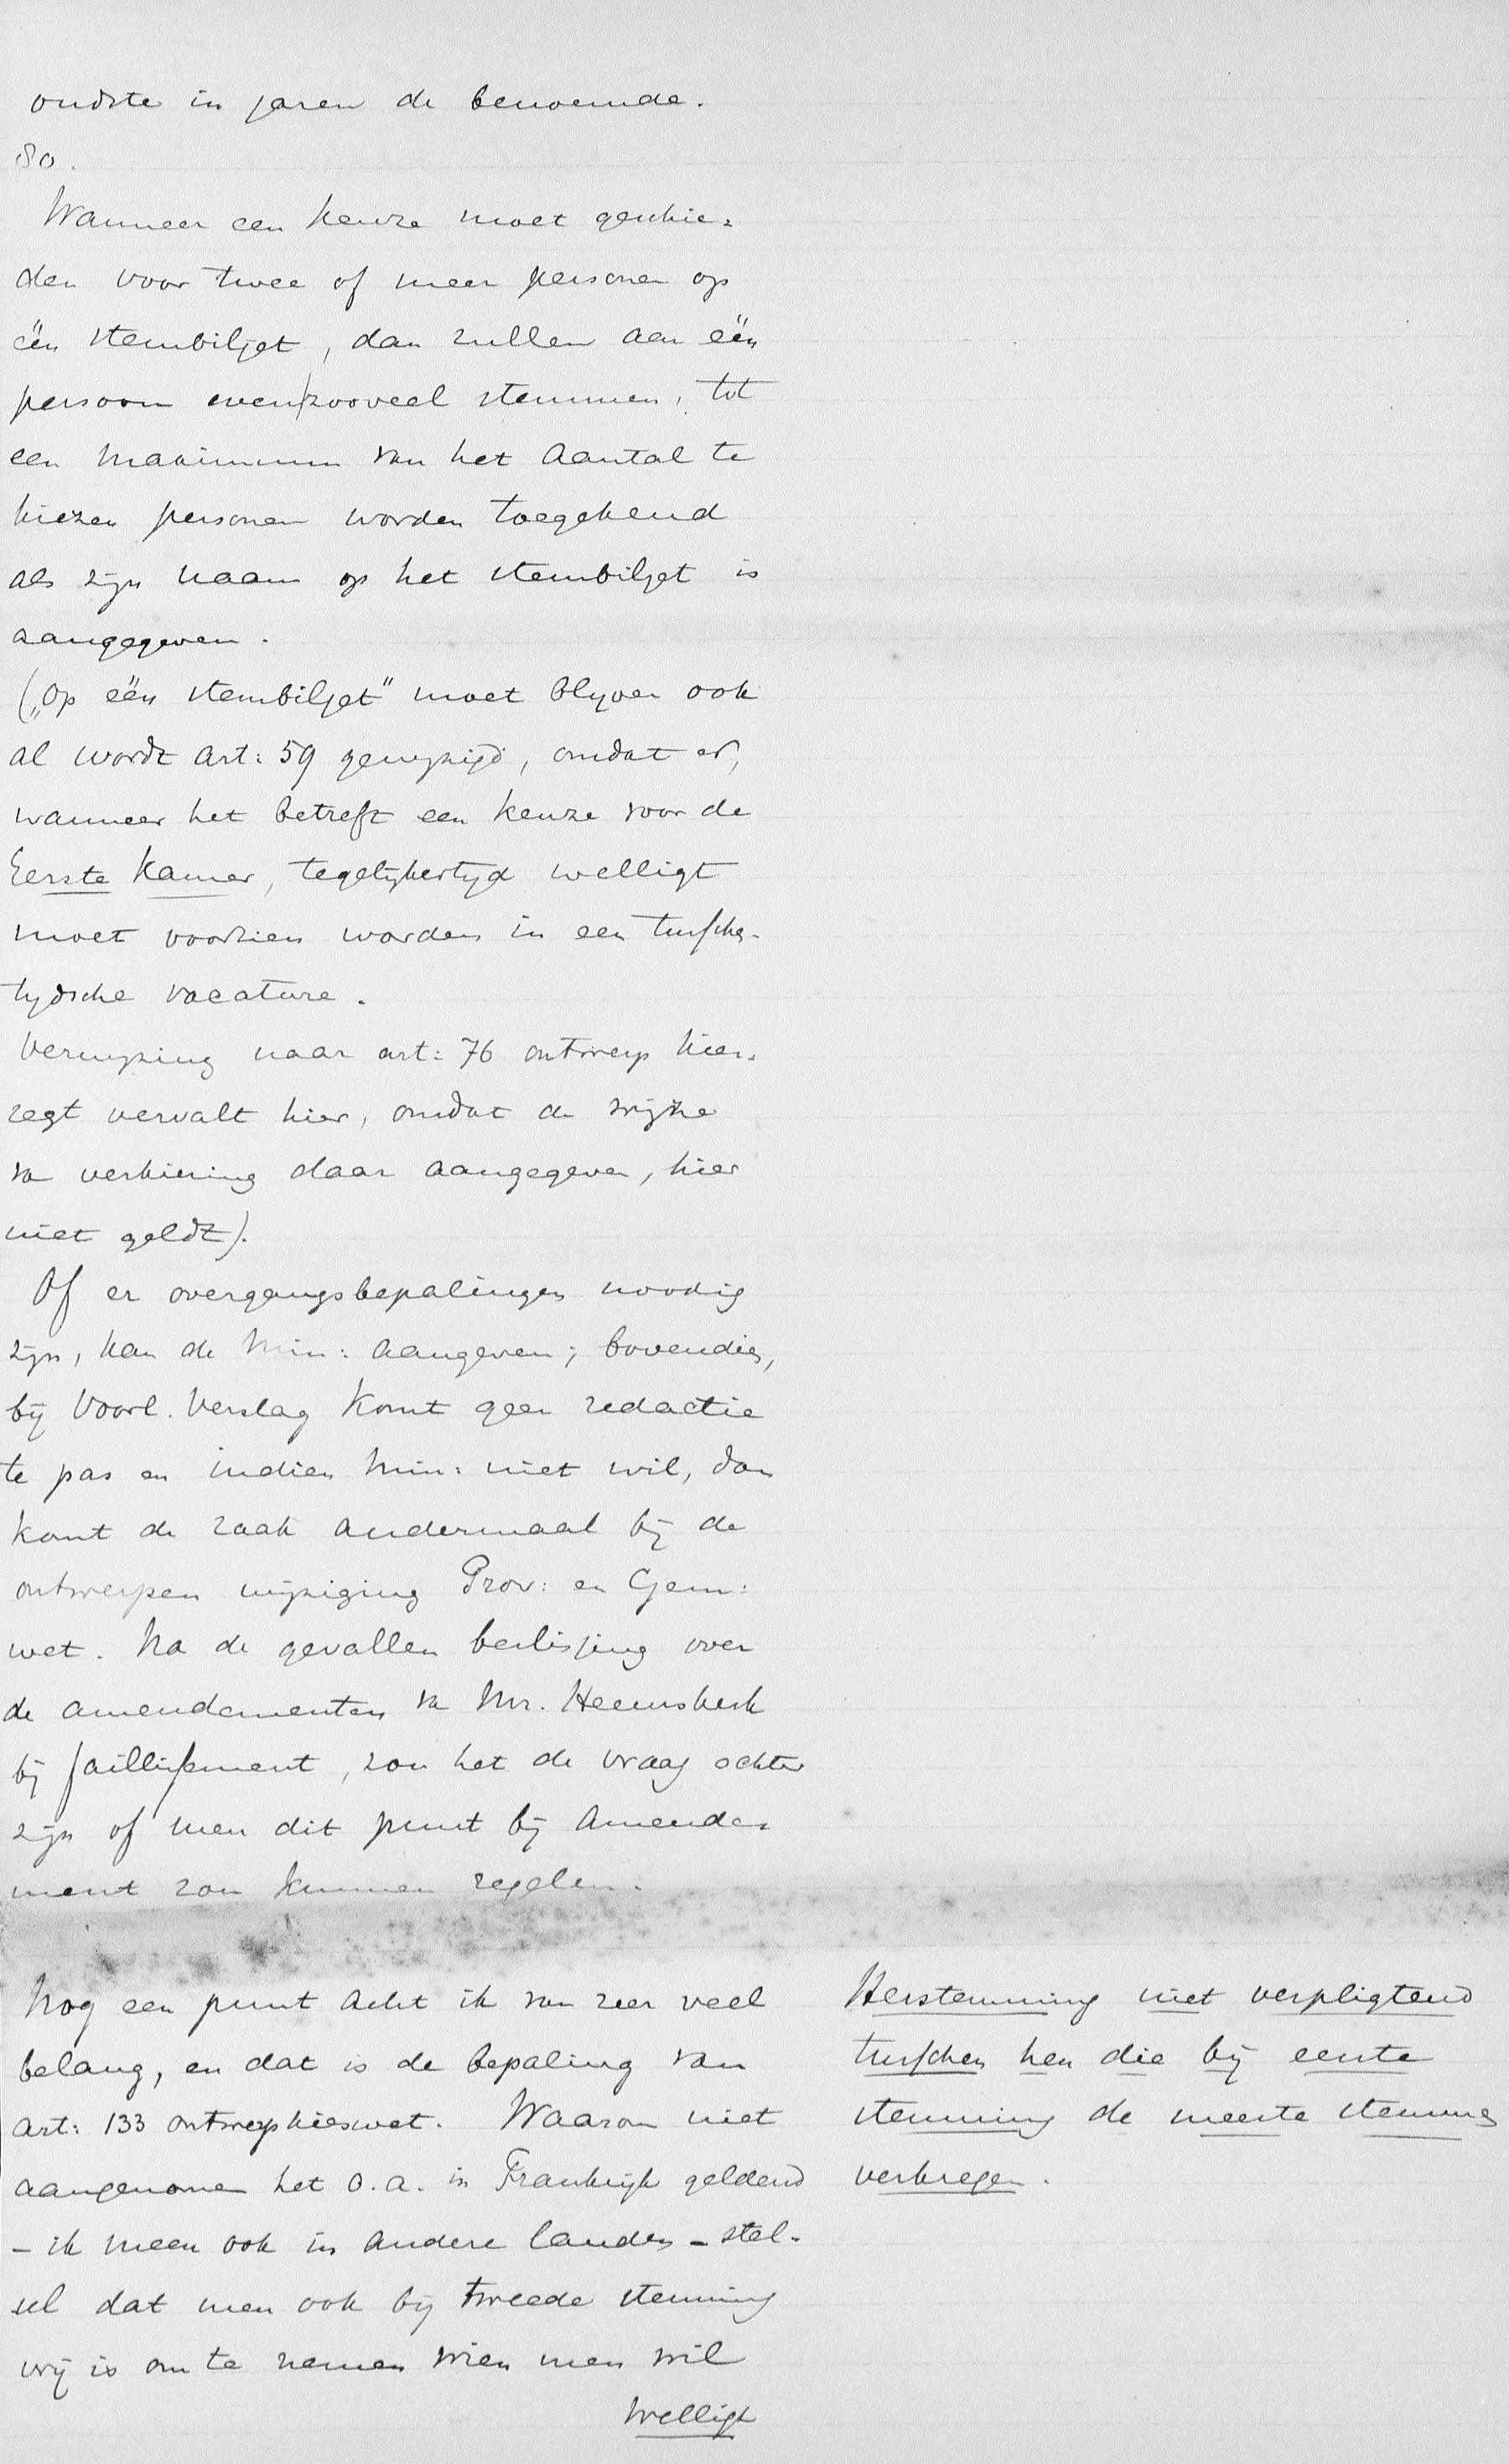 oudste in jaren de benoemde.
80.
Wanneer een keuze moet geschie=
den voor twee of meer personen op
één stembiljet, dan zullen aan één
persoon evenzooveel stemmen, tot
een maximum van het aantal te
kiezen personen worden toegekend
als zijn naam op het stembiljet is
aangegeven.
(„Op één stembiljet" moet blyven ook
al wordt art: 59 gewyzigd, omdat er,
wanneer het betreft een keuze voor de
Eerste Kamer, tegelykertyd welligt
moet voorzien worden in een tusschen-
tydsche vacature.
Verwyzing naar art: 76 ontwerp kies=
regt vervalt hier, omdat de wijze
van verkiezing daar aangegeven, hier
niet geldt).
Of er overgangsbepalingen noodig
zijn, kan de Min: aangeven; bovendien,
bij Voorl. Verslag komt geen redactie
te pas en indien Min: niet wil, dan
komt de zaak andermaal bij de
ontwerpen wijziging Prov: en Gem:
wet. Na de gevallen beslissing over
de amendementen van Mr. Heemskerk
bij faillissement, zou het de vraag echter
zijn of men dit punt bij amende=
ment zou kunnen regelen.
Nog een punt acht ik van zeer veel
belang, en dat is de bepaling van
art: 133 ontwerp kieswet. Waarom niet
aangenomen het o.a. in Frankrijk geldend
- ik meen ook in andere landen - stel-
sel dat men ook bij tweede stemming
vrij is om te nemen wien men wil
Welligt
Herstemming niet verpligtend
tusschen hen die bij eerste
stemming de meeste stemmen
verkregen.